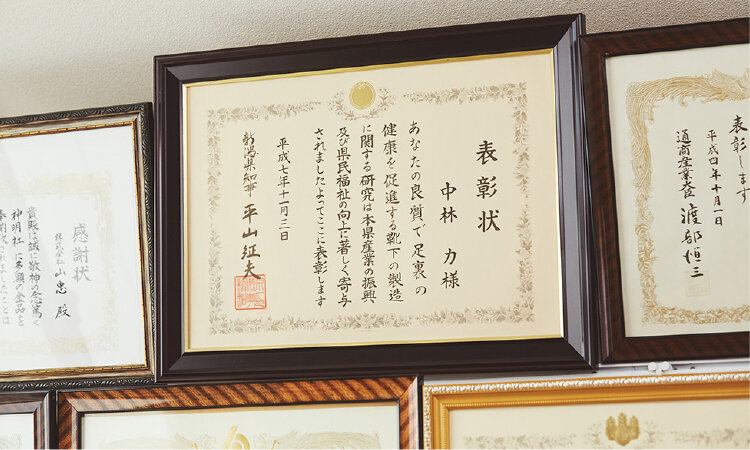 表彰状
中林 力 様
あなたの良質で足裏の
健康を促進する靴下の製造
に関する研究は本県産業の振興
及び県民福祉の向上に著しく寄与
されましたよってここに表彰します
平成七年十一月三日
新潟県知事 平山征夫
表彰します
平成四年十月一日
通商産業大臣 渡部恒三
感謝状
株式会社 山忠 殿
貴殿は誠に敬神の念篤く
神明社 に多額の金品を